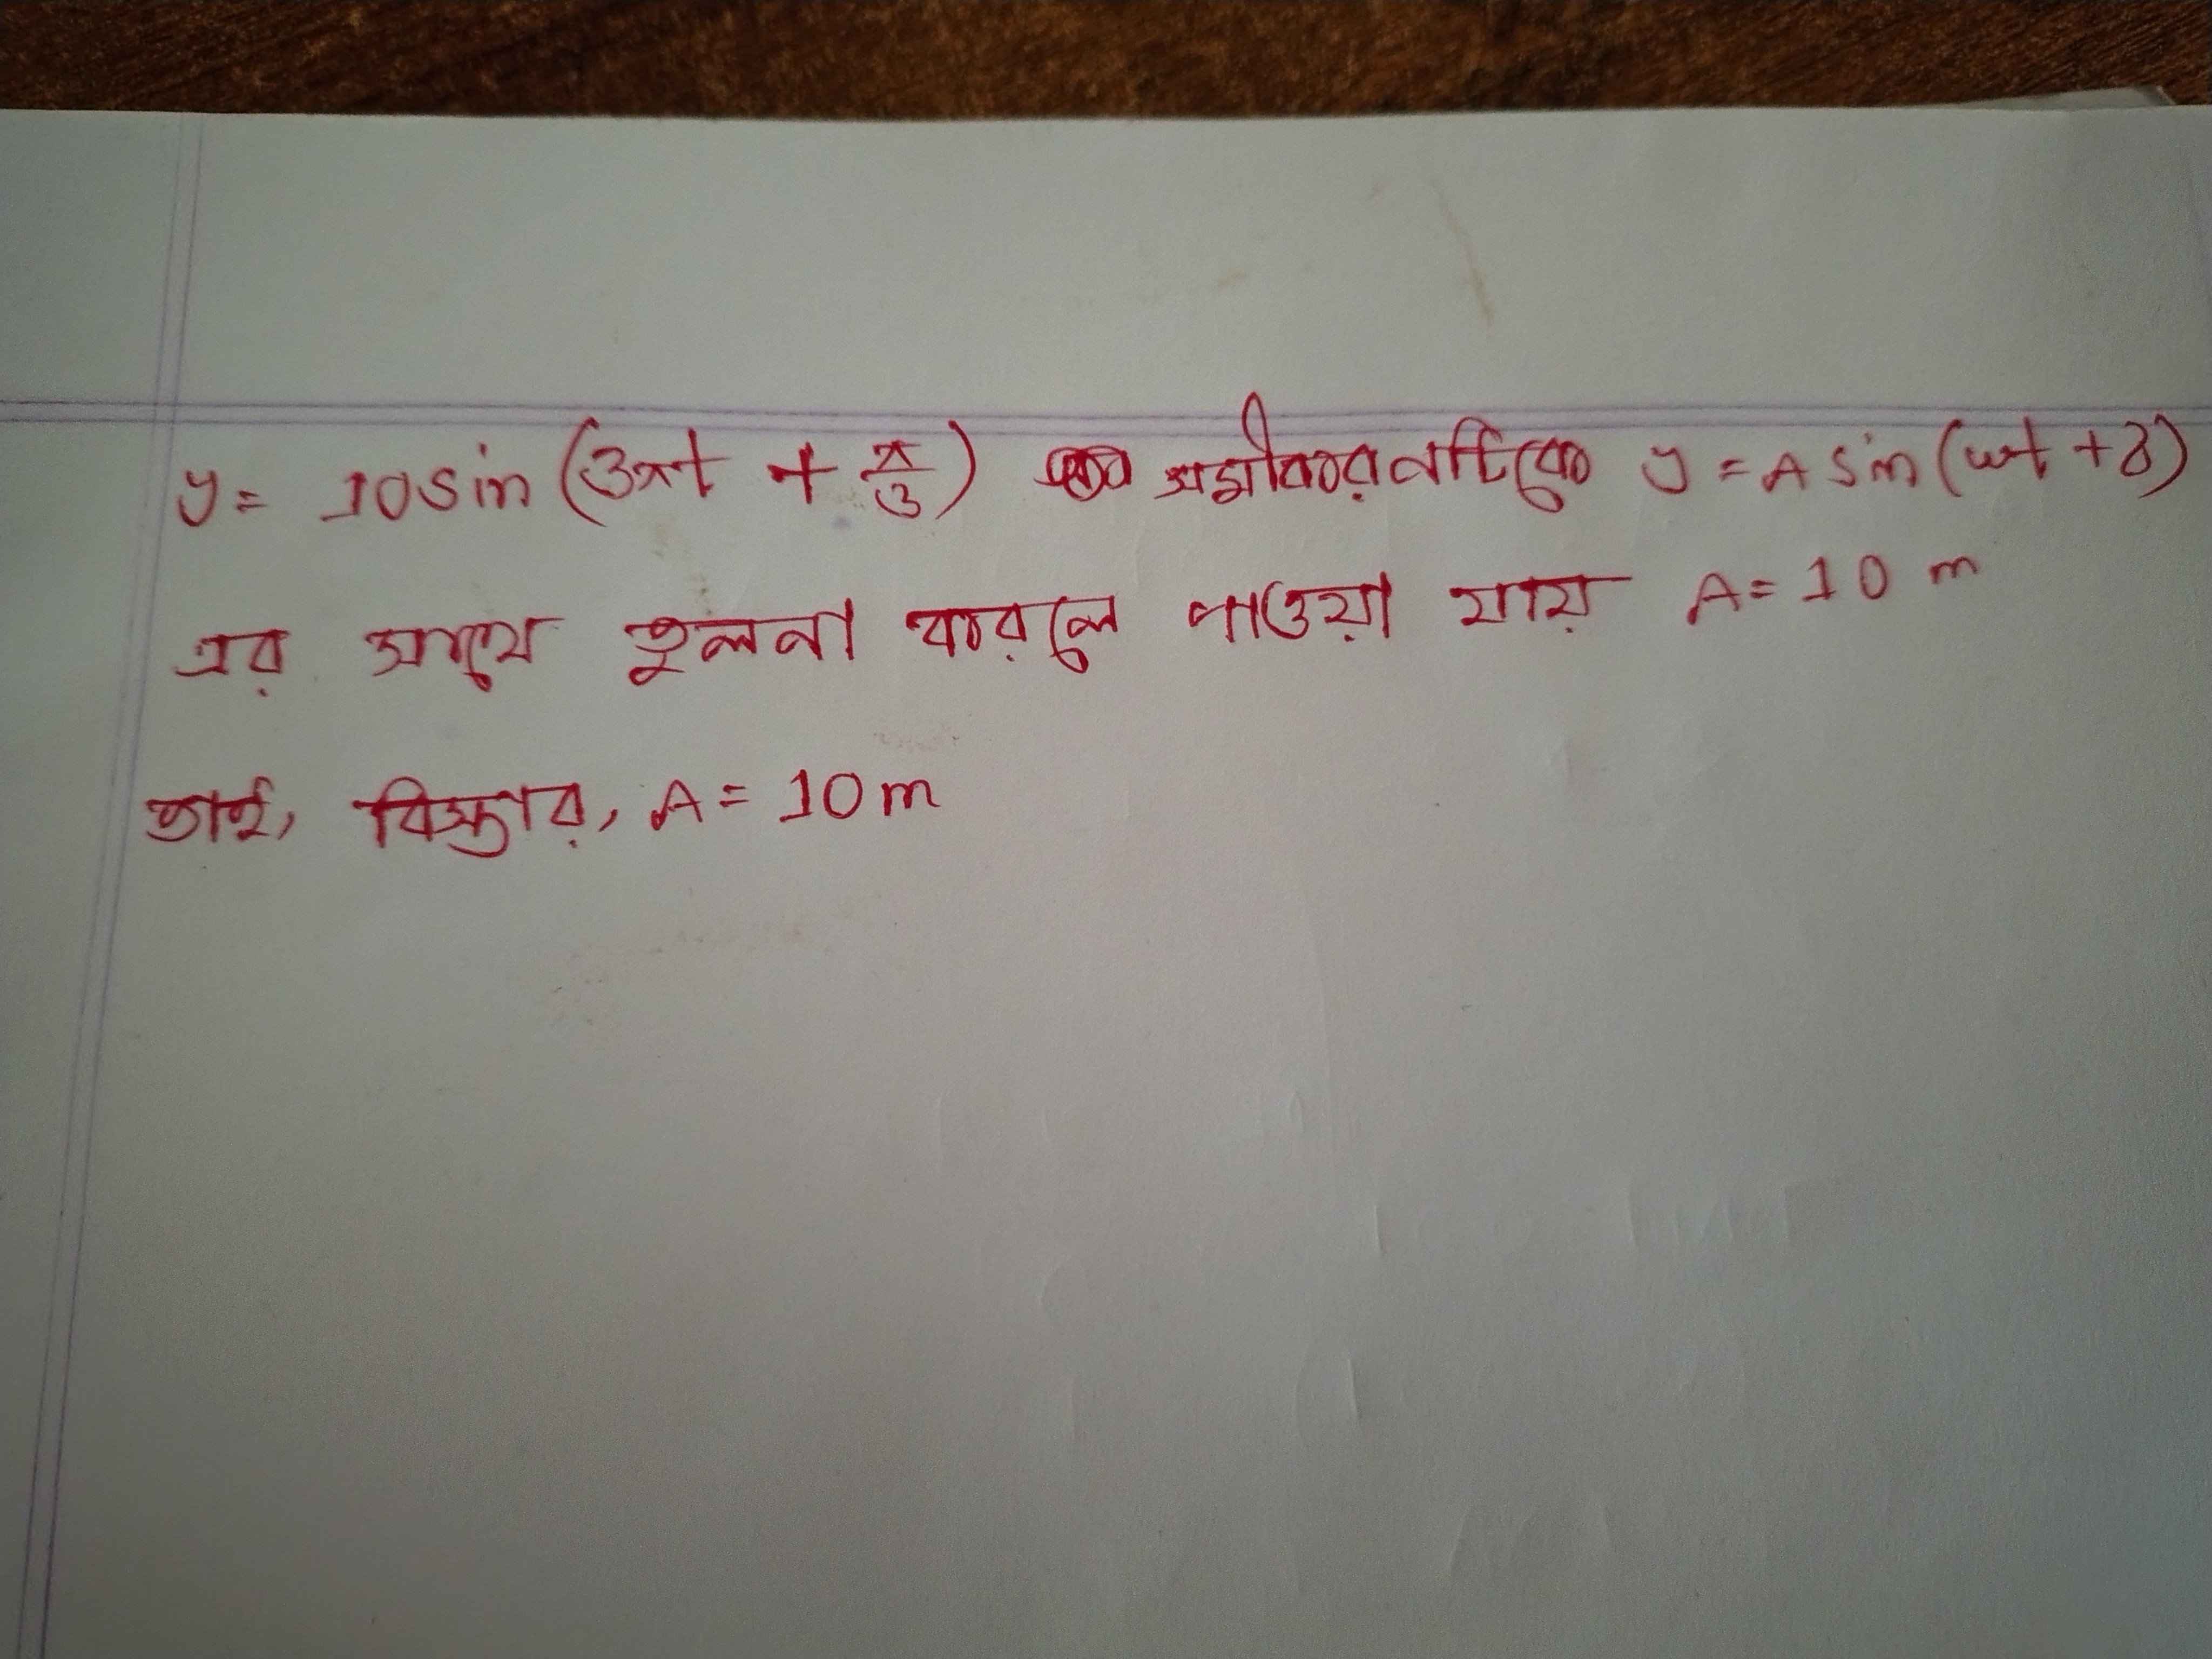 y = 10 sin (3πt + π/3) সমীকরণটিকে y = A sin (ωt + δ)
এর সাথে তুলনা করলে পাওয়া যায় A = 10 m
তাই, বিস্তার, A = 10 m